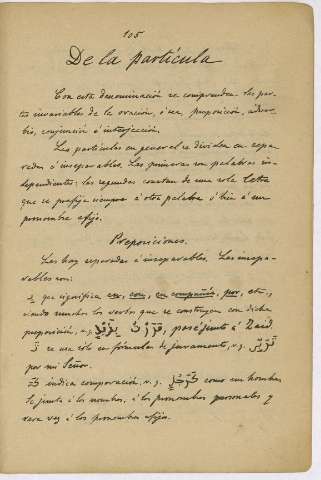 105
De la partícula
Con esta denominación se comprenden las par-
tes invariables de la oración, ó sea, preposición, adver-
bio, conjunción é interjección.
Las partículas en general se dividen en sepa-
radas é inseparables. Las primeras son palabras in-
dependientes; las segundas constan de una sola letra
que se prefija siempre á otra palabra ó bien á un
pronombre afijo.
Preposiciones.
Las hay separadas é inseparables. Las insepa-
rables son:
que significa en, con, en compañía, por, etc.,
siendo muchos los verbos que se construyen con dicha
preposición, v.g. مررت بزيد, pasé junto á Zaid.
se usa sólo en fórmulas de juramento, v.g.
por mi Señor.
indica comparación, v.g. كرجل como un hombre
Se junta á los nombres, á los pronombres personales y
rara vez á los pronombres afijos.